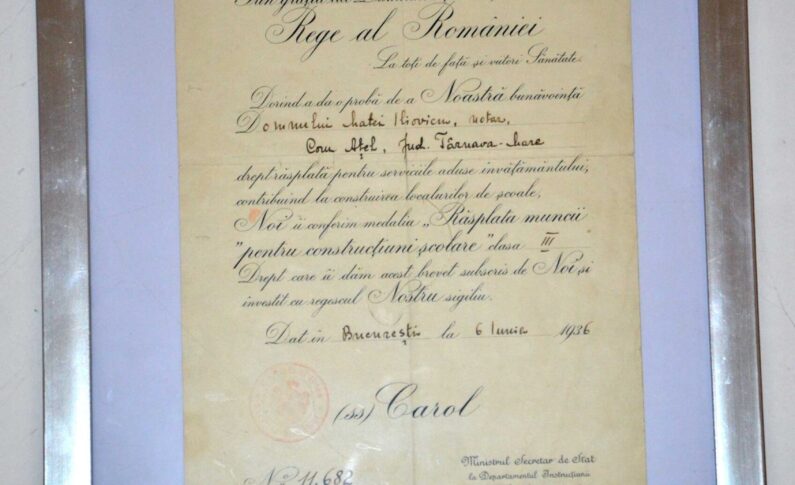 Rege al României
La toți de față și viitori Sănătate.
Dorind a da o probă de a Noastră bunăvoință
Domnului Matei Iliovicu, notar,
Com Ațel, Jud. Târnava-Mare
drept răsplată pentru serviciile aduse învățământului,
contribuind la construirea localurilor de școale,
Noi îi conferim medalia „Răsplata muncii
"pentru construcțiuni școlare" clasa III
Drept care îi dăm acest brevet subscris de Noi și
investit cu regescul Nostru sigiliu.
Dat în București la 6 Iunie 1936
(ss) Carol
Ministrul Secretar de Stat
la Departamentul Instrucțiunii
No 11.682